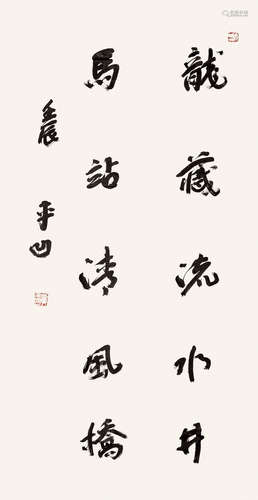 龍藏流水井
馬站清風橋
壬辰 平凹